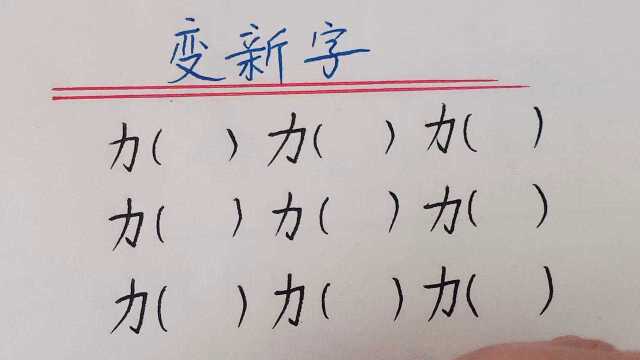 变新字
力( ) 力( ) 力( )
力( ) 力( ) 力( )
力( ) 力( ) 力( )